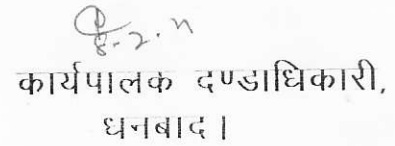 8.2.11
कार्यपालक दण्डाधिकारी,
धनबाद।